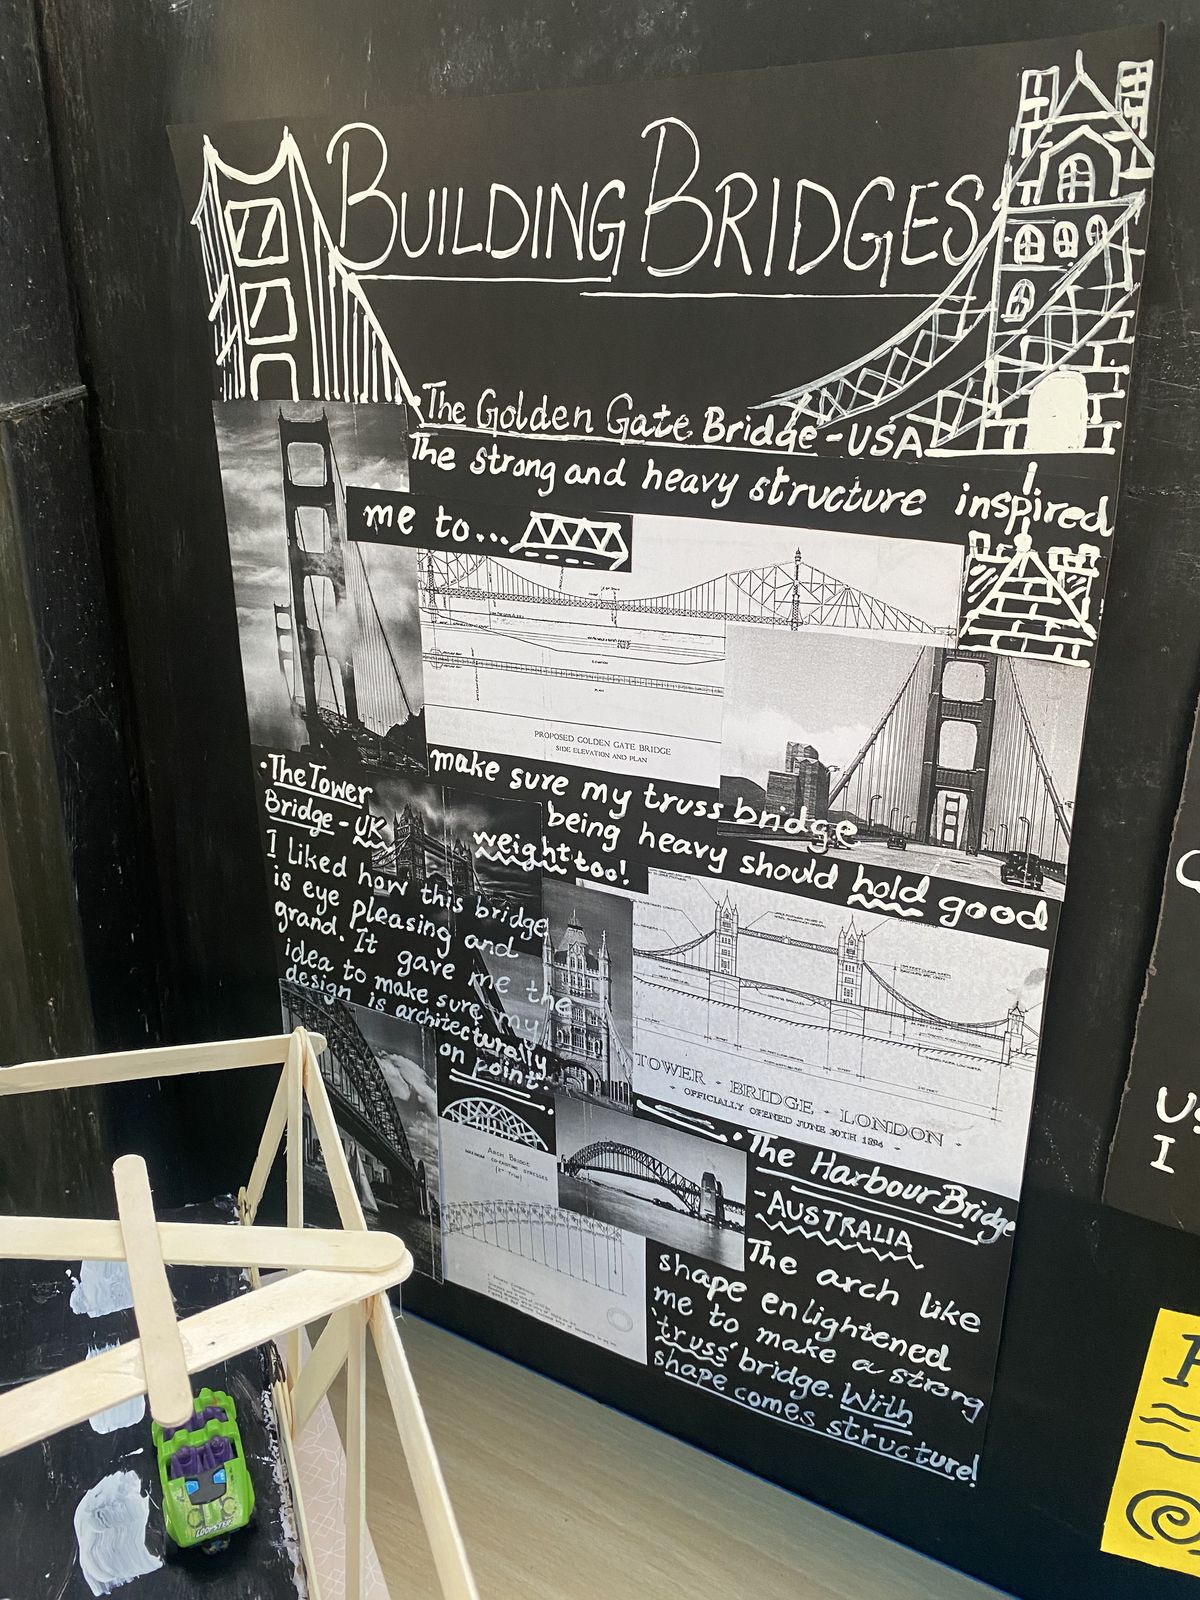 BUILDING BRIDGES
• The Golden Gate Bridge - USA
The strong and heavy structure inspired
me to...
PROPOSED GOLDEN GATE BRIDGE
SIDE ELEVATION AND PLAN
make sure my truss bridge
being heavy should hold good
weight too!
• The Tower
Bridge - UK
I liked how this bridge
is eye pleasing and
grand. It gave me the
idea to make sure my
design is architecturally
on point.
TOWER - BRIDGE - LONDON
- OFFICIALLY OPENED JUNE 30TH 1894 -
ARCH BRIDGE
MAXIMUM CO-EXISTING STRESSES
• The Harbour Bridge
- AUSTRALIA
The arch like
shape enlightened
me to make a strong
'truss' bridge. With
shape comes structure!
LOOPSTER
U
I